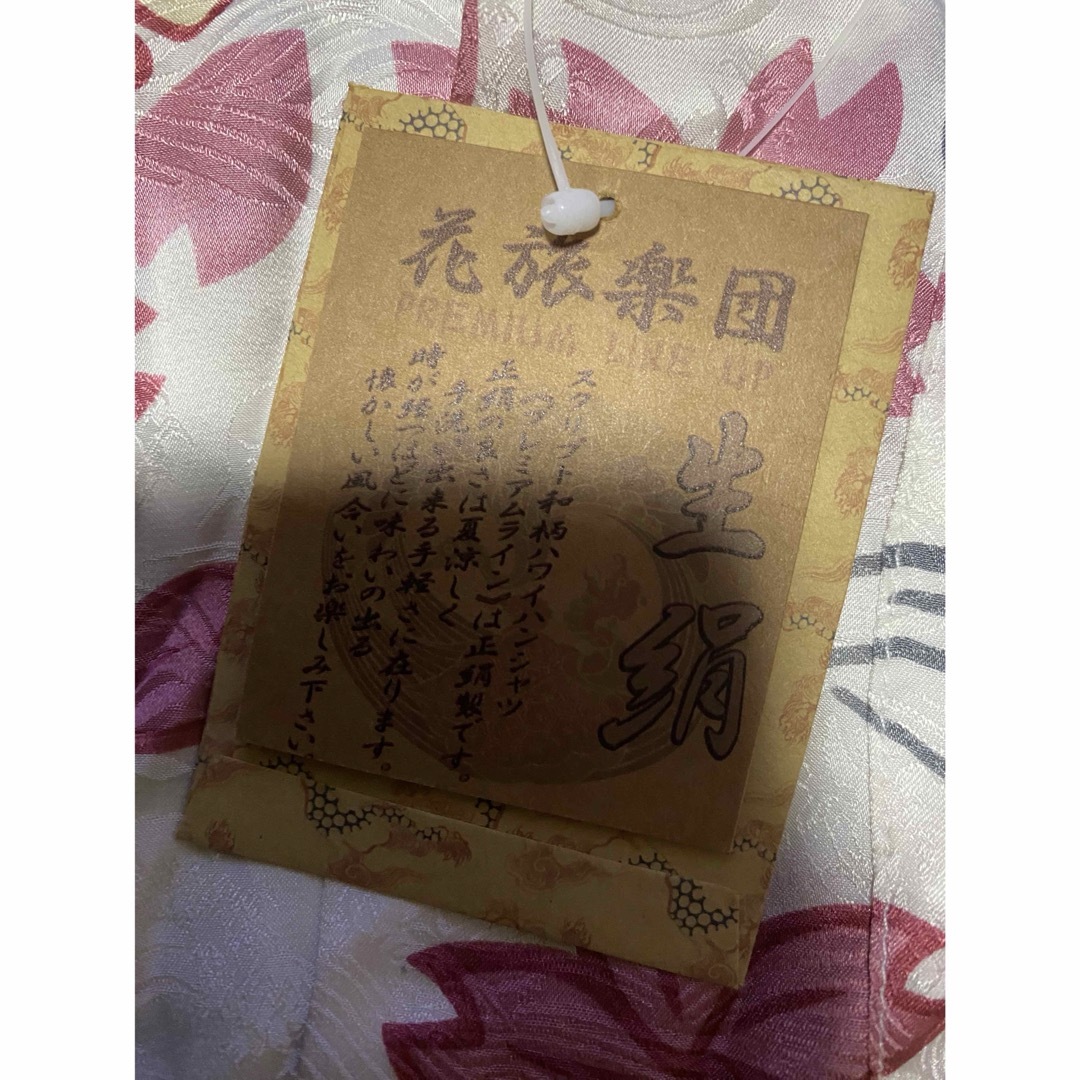 花旅楽団
PREMIUM LINE UP
生絹
スクリプト和柄ハワイハンシャツ
(プレミアムライン)は正絹製です。
正絹の良さは夏涼しく
手洗い出来る手軽さに在ります。
時が経つほどに味わいの出る
懐かしい風合いをお楽しみ下さい